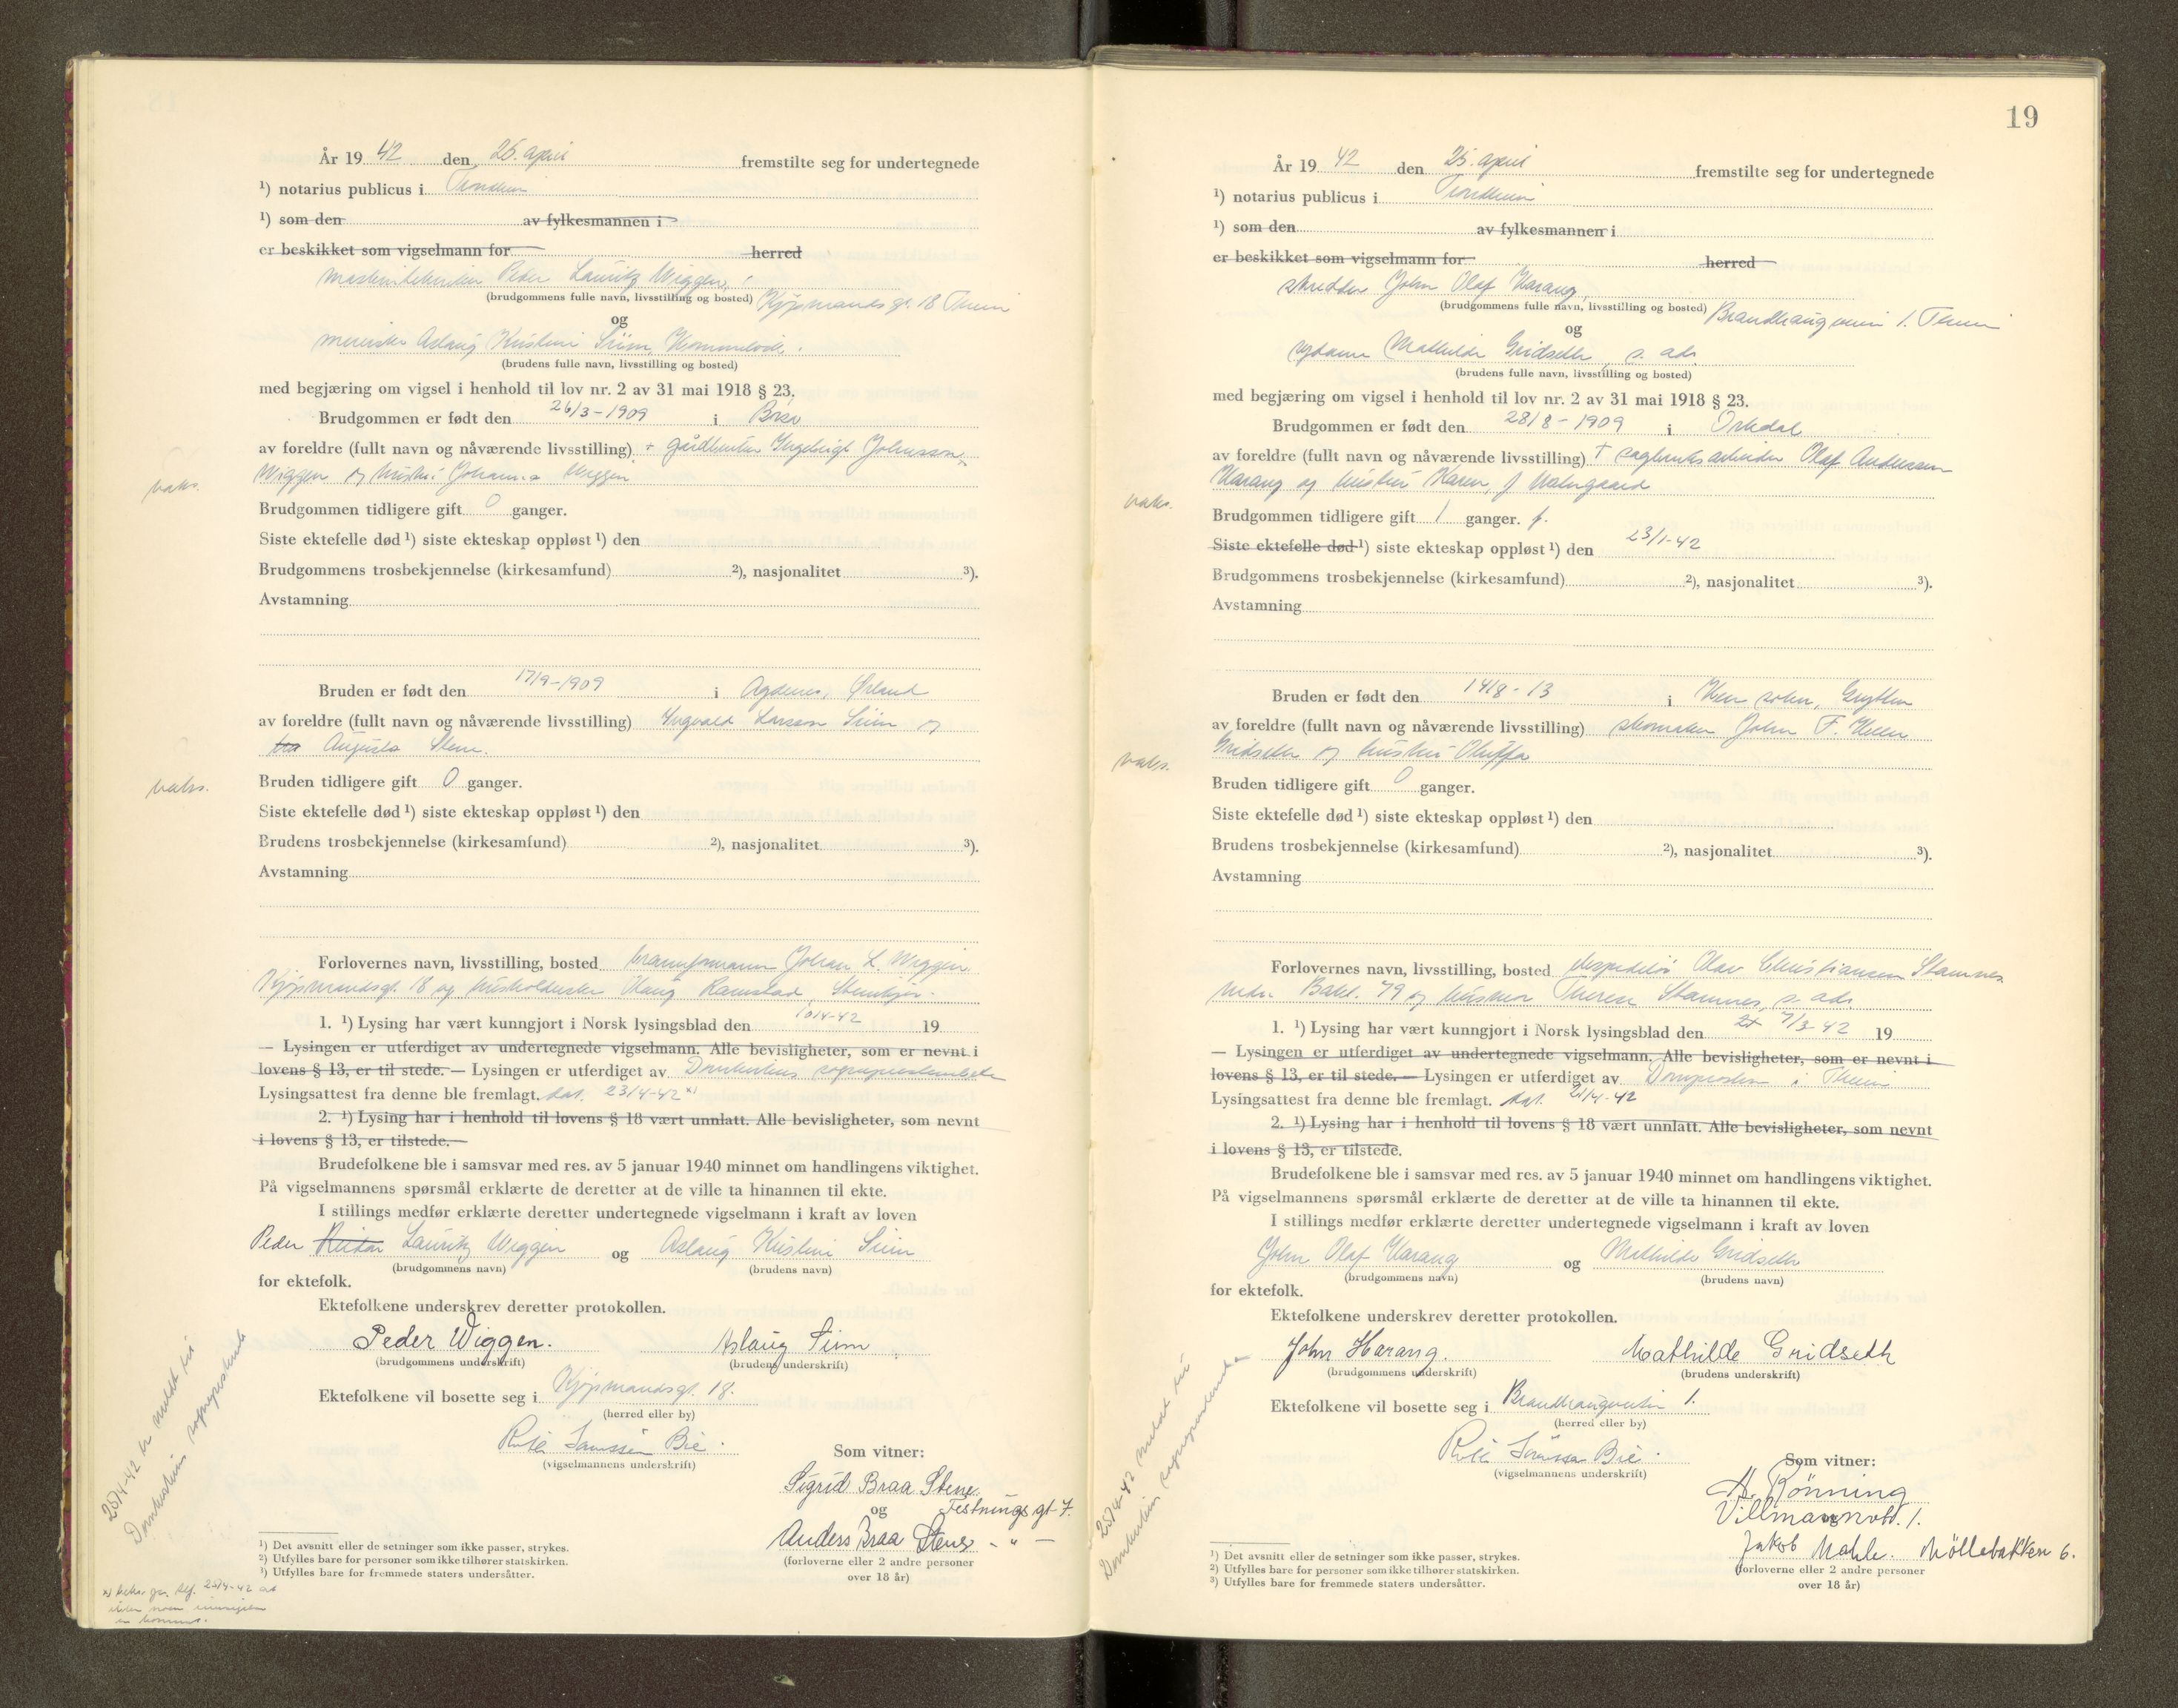 År 19 42 den 25. april fremstilte seg for undertegnede
¹) notarius publicus i Trondheim
¹) som den av fylkesmannen i
er beskikket som vigselmann for herred
Peder Lauritz Wiggen,
(brudgommens fulle navn, livsstilling og bosted) Kjøpmandsgt. 18 Theim
og
Aslaug Kristine Siim,
(brudens fulle navn, livsstilling og bosted)
med begjæring om vigsel i henhold til lov nr. 2 av 31 mai 1918 § 23.
Brudgommen er født den 26/3-1909 i
av foreldre (fullt navn og nåværende livsstilling) + gårdbruker Ingebrigt Johnsen
Wiggen og hustru Johanna Wiggen
vaks.
Brudgommen tidligere gift 0 ganger.
Siste ektefelle død ¹) siste ekteskap oppløst ¹) den
Brudgommens trosbekjennelse (kirkesamfund) ²), nasjonalitet ³).
Avstamning
Bruden er født den 17/9-1909 i Agdenes, Ørland
av foreldre (fullt navn og nåværende livsstilling) Ingvald Larssen Siim og
Augusta Stene.
vaks.
Bruden tidligere gift 0 ganger.
Siste ektefelle død ¹) siste ekteskap oppløst ¹) den
Brudens trosbekjennelse (kirkesamfund) ²), nasjonalitet ³).
Avstamning
Forlovernes navn, livsstilling, bosted Johan L. Wiggen
Kjøpmandsgt. 18 og Ramstad, Steinkjer.
1. ¹) Lysing har vært kunngjort i Norsk lysingsblad den 10/4-42 19
— Lysingen er utferdiget av undertegnede vigselmann. Alle bevisligheter, som er nevnt i
lovens § 13, er til stede. — Lysingen er utferdiget av Domkirkens sogneprestembete
Lysingsattest fra denne ble fremlagt. dat. 23/4-42 x)
2. ¹) Lysing har i henhold til lovens § 18 vært unnlatt. Alle bevisligheter, som nevnt
i lovens § 13, er tilstede.—
Brudefolkene ble i samsvar med res. av 5 januar 1940 minnet om handlingens viktighet.
På vigselmannens spørsmål erklærte de deretter at de ville ta hinannen til ekte.
I stillings medfør erklærte deretter undertegnede vigselmann i kraft av loven
Peder Lauritz Wiggen og Aslaug Kristine Siim
(brudgommens navn) (brudens navn)
for ektefolk.
Ektefolkene underskrev deretter protokollen.
Peder Wiggen. Aslaug Siim
(brudgommens underskrift) (brudens underskrift)
Ektefolkene vil bosette seg i Kjøpmandsgt. 18.
(herred eller by)
(vigselmannens underskrift)
Som vitner:
Sigrid Braa Stene
og Festningsgt 7.
Anders Braa Stene - " -
(forloverne eller 2 andre personer
over 18 år)
25/4-42 er meldt til
Domkirkens sogneprestemb
¹) Det avsnitt eller de setninger som ikke passer, strykes.
²) Utfylles bare for personer som ikke tilhører statskirken.
³) Utfylles bare for fremmede staters undersåtter.
19
År 19 42 den 25. april fremstilte seg for undertegnede
¹) notarius publicus i Trondheim
¹) som den av fylkesmannen i
er beskikket som vigselmann for herred
skredder John Olaf Harang,
(brudgommens fulle navn, livsstilling og bosted) Brandhaugveien 1. Theim
og
Mathilde Gridseth, s. ads.
(brudens fulle navn, livsstilling og bosted)
med begjæring om vigsel i henhold til lov nr. 2 av 31 mai 1918 § 23.
Brudgommen er født den 28/8-1909 i Orkdal
av foreldre (fullt navn og nåværende livsstilling) + sagbruksarbeider Olaf Andersen
Harang og hustru Karen, f
vaks.
Brudgommen tidligere gift 1 ganger. f.
Siste ektefelle død ¹) siste ekteskap oppløst ¹) den 23/1-42
Brudgommens trosbekjennelse (kirkesamfund) ²), nasjonalitet ³).
Avstamning
Bruden er født den 14/8-13 i Hen sokn, Grytten
av foreldre (fullt navn og nåværende livsstilling) skomaker John F.
Gridseth og hustru Oluffa
vaks.
Bruden tidligere gift 0 ganger.
Siste ektefelle død ¹) siste ekteskap oppløst ¹) den
Brudens trosbekjennelse (kirkesamfund) ²), nasjonalitet ³).
Avstamning
Forlovernes navn, livsstilling, bosted ekspeditør Olav Christiansen Stamnes
Bakl. 79 og hustru Therese Stamnes, s. ads.
1. ¹) Lysing har vært kunngjort i Norsk lysingsblad den 7/3-42 19
— Lysingen er utferdiget av undertegnede vigselmann. Alle bevisligheter, som er nevnt i
lovens § 13, er til stede. — Lysingen er utferdiget av Domprosten i Theim
Lysingsattest fra denne ble fremlagt. dat. 21/4-42
2. ¹) Lysing har i henhold til lovens § 18 vært unnlatt. Alle bevisligheter, som nevnt
i lovens § 13, er tilstede.
Brudefolkene ble i samsvar med res. av 5 januar 1940 minnet om handlingens viktighet.
På vigselmannens spørsmål erklærte de deretter at de ville ta hinannen til ekte.
I stillings medfør erklærte deretter undertegnede vigselmann i kraft av loven
John Olaf Harang og Mathilde Gridseth
(brudgommens navn) (brudens navn)
for ektefolk.
Ektefolkene underskrev deretter protokollen.
John Harang. Mathilde Gridseth
(brudgommens underskrift) (brudens underskrift)
Ektefolkene vil bosette seg i Brandhaugveien 1.
(herred eller by)
(vigselmannens underskrift)
Som vitner:
A. Rönning
Villmannvld. 1.
og
Jakob Mahle. Möllebakken 6.
(forloverne eller 2 andre personer
over 18 år)
25/4-42 meldt til
Domkirkens sogneprestembede
¹) Det avsnitt eller de setninger som ikke passer, strykes.
²) Utfylles bare for personer som ikke tilhører statskirken.
³) Utfylles bare for fremmede staters undersåtter.